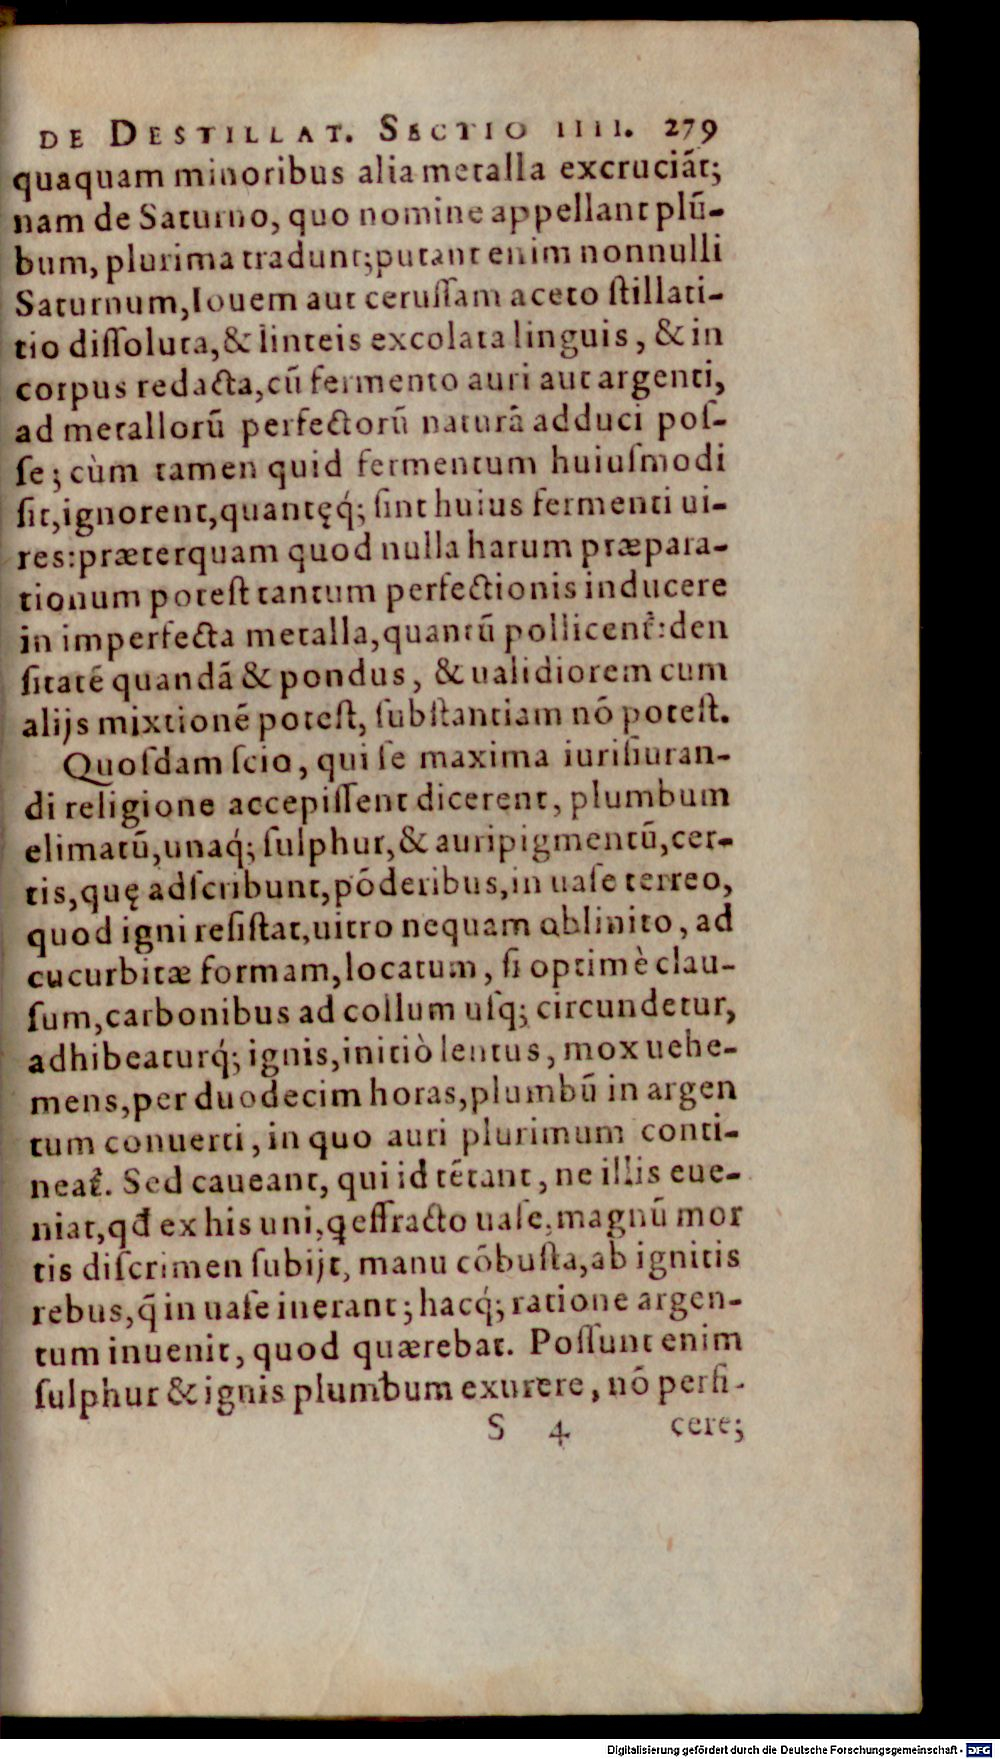 DE DESTILLAT. SECTIO IIII. 279
quaquam minoribus alia metalla excruciãt;
nam de Saturno, quo nomine appellant plũ-
bum, plurima tradunt;putant enim nonnulli
Saturnum,Iouem aut ceruſſam aceto ſtillati-
tio diſſoluta,& linteis excolata linguis, & in
corpus redacta,cũ fermento auri aut argenti,
ad metallorũ perfectorũ naturã adduci poſ-
ſe; cùm tamen quid fermentum huiuſmodi
ſit,ignorent,quantęq́; ſint huius fermenti ui-
res:præterquam quod nulla harum præpara-
tionum poteſt tantum perfectionis inducere
in imperfecta metalla,quantũ pollicent᷑:den
ſitatẽ quandã & pondus, & ualidiorem cum
alijs mixtionẽ poteſt, ſubſtantiam nõ poteſt.
Quoſdam ſcio, qui ſe maxima iuriſiuran-
di religione accepiſſent dicerent, plumbum
elimatũ,unaq́; ſulphur,& auripigmentũ,cer-
tis,quę adſcribunt,põderibus,in uaſe terreo,
quod igni reſiſtat,uitro nequam oblinito, ad
cucurbitæ formam,locatum, ſi optimè clau-
ſum,carbonibus ad collum uſq; circundetur,
adhibeaturq́; ignis,initiò lentus, mox uehe-
mens,per duodecim horas,plumbũ in argen
tum conuerti, in quo auri plurimum conti-
neat᷑. Sed caueant, qui id tẽtant, ne illis eue-
niat,qđ ex his uni,ꝗ effracto uaſe, magnũ mor
tis diſcrimen ſubijt, manu cõbuſta,ab ignitis
rebus,q̃ in uaſe inerant; hacq́; ratione argen-
tum inuenit, quod quærebat. Poſſunt enim
ſulphur & ignis plumbum exurere, nõ perfi-
S 4 cere;
Digitalisierung gefördert durch die Deutsche Forschungsgemeinschaft - DFG